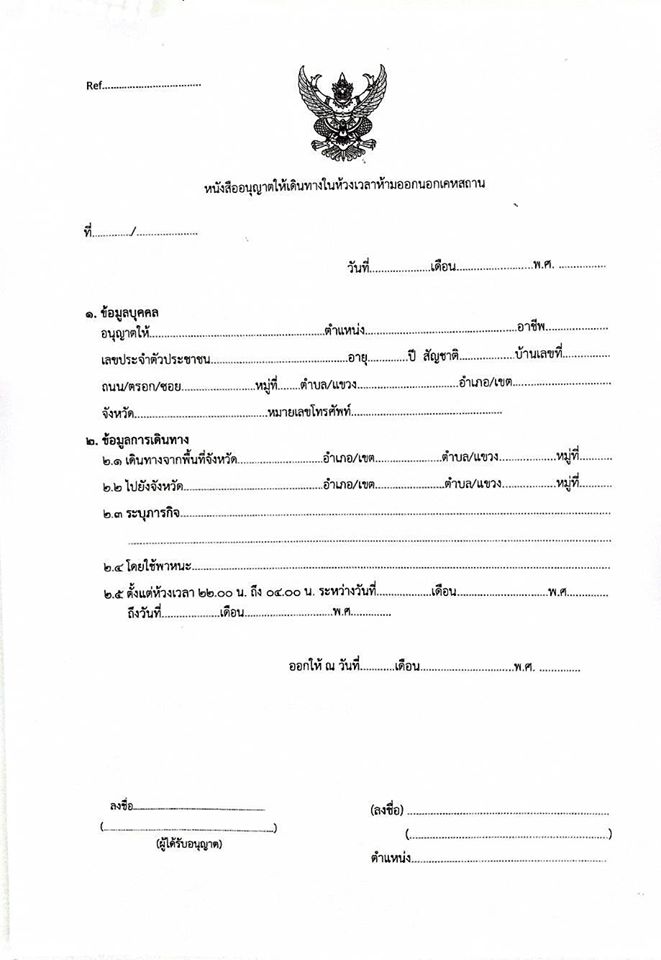 Ref..................................
หนังสืออนุญาตให้เดินทางในห้วงเวลาห้ามออกนอกเคหสถาน
ที่............./.....................
วันที่.....................เดือน..........................พ.ศ. ................
๑. ข้อมูลบุคคล
อนุญาตให้............................................................ตำแหน่ง....................................................อาชีพ.....................
เลขประจำตัวประชาชน...............................................อายุ..............ปี สัญชาติ...................บ้านเลขที่................
ถนน/ตรอก/ซอย.........................หมู่ที่........ตำบล/แขวง..................................อำเภอ/เขต.................................
จังหวัด..............................................หมายเลขโทรศัพท์....................................................
๒. ข้อมูลการเดินทาง
๒.๑ เดินทางจากพื้นที่จังหวัด.............................อำเภอ/เขต.......................ตำบล/แขวง....................หมู่ที่...........
๒.๒ ไปยังจังหวัด................................................อำเภอ/เขต........................ตำบล/แขวง...................หมู่ที่...........
๒.๓ ระบุภารกิจ....................................................................................................................................................
....................................................................................................................................................................
๒.๔ โดยใช้พาหนะ................................................................................................................................................
๒.๕ ตั้งแต่ห้วงเวลา ๒๒.๐๐ น. ถึง ๐๔.๐๐ น. ระหว่างวันที่...................เดือน...............................พ.ศ..............
ถึงวันที่....................เดือน..............................พ.ศ..............
ออกให้ ณ วันที่............เดือน...............................พ.ศ. ..............
ลงชื่อ.............................................
(..........................................................)
(ผู้ได้รับอนุญาต)
(ลงชื่อ) .....................................................................
(....................................................................)
ตำแหน่ง...................................................................